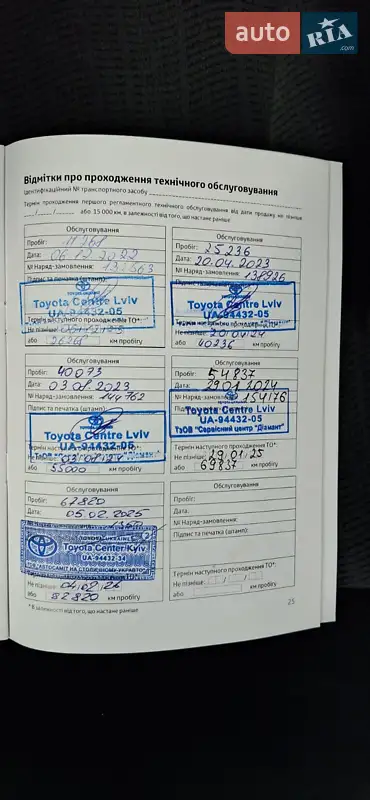 auto RIA.com
Відмітки про проходження технічного обслуговування
Ідентифікаційний № транспортного засобу
Термін проходження першого регламентного технічного обслуговування від дати продажу не пізніше
або 15 000 км, в залежності від того, що настане раніше
Обслуговування
Пробіг: 11261
Дата: 06.12.2022
№ Наряд-замовлення:
Підпис та печатка (штамп):
Toyota Centre Lviv
UA-94432-05
Термін наступного проходження ТО*:
Не пізніше:
або 26261 км пробігу
Обслуговування
Пробіг: 25236
Дата: 20.04.2023
№ Наряд-замовлення: 138926
Підпис та печатка (штамп):
Toyota Centre Lviv
UA-94432-05
Не пізніше: 20/04/24
або 40236 км пробігу
Обслуговування
Пробіг: 40073
Дата: 03.08.2023
№ Наряд-замовлення: 144762
Підпис та печатка (штамп):
Toyota Centre Lviv
UA-94432-05
Не пізніше:
або 55000 км пробігу
Обслуговування
Пробіг: 54837
Дата: 29.01.2024
№ Наряд-замовлення: 154176
Toyota Centre Lviv
UA-94432-05
ТзОВ "Сервісний центр "Діамант"
Термін наступного проходження ТО*:
Не пізніше: 29/01/25
або 69837 км пробігу
Обслуговування
Пробіг: 67820
Дата: 05.02.2025
Toyota Center Kyiv
UA-94432-34
Не пізніше:
або 82820 км пробігу
Обслуговування
Пробіг:
Дата:
№ Наряд-замовлення:
Підпис та печатка (штамп):
Термін наступного проходження ТО*:
Не пізніше:
або км пробігу
* В залежності від того, що настане раніше
25